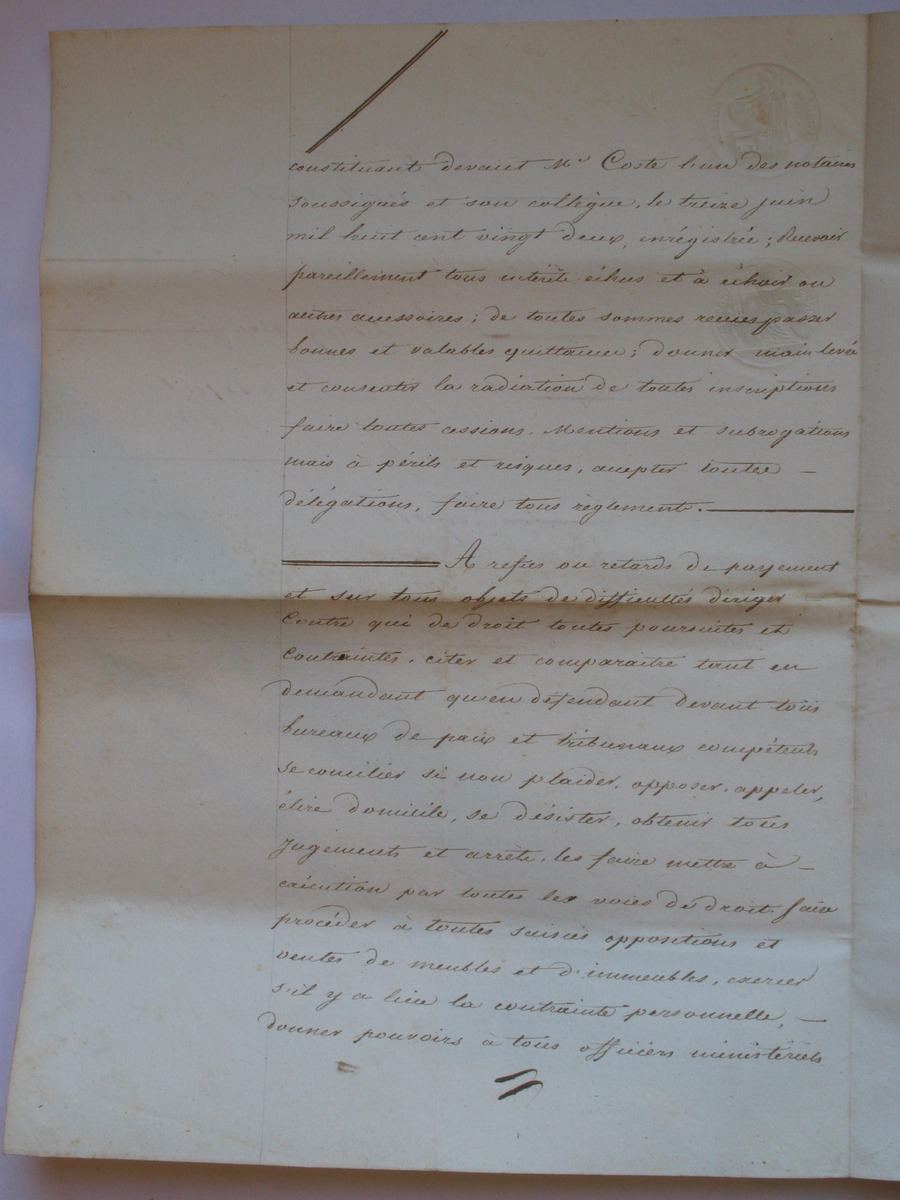 constituant devant Me Coste l'un des notaires
soussignés et son collègue, le treize juin
mil huit cent vingt deux, enrégistrée; Recevoir
pareillement tous intérêts échus et à échoir ou
autres accessoires; de toutes sommes reçues passer
bonnes et valables quittances; donner main levée
et consentir la radiation de toutes inscriptions
faire toutes cessions. Mentions et subrogations
mais à périls et risques, accepter toutes —
délégations, faire tous règlements. —
A refus ou retards de payement
et sur tous objets de difficultés diriger
Contre qui de droit toutes poursuites et
Contraintes, citer et comparaitre tant en
demandant qu'en défendant devant tous
bureaux de paix et tribunaux compétents
se concilier si non plaider, opposer, appeler,
élire domicile, se désister, obtenir tous
jugements et arrêts, les faire mettre à —
exécution par toutes les voies de droit. faire
procéder à toutes saisies oppositions et
ventes de meubles et d'immeubles, exercer
s'il y a lieu la contrainte personnelle, —
donner pouvoirs à tous officiers ministériels